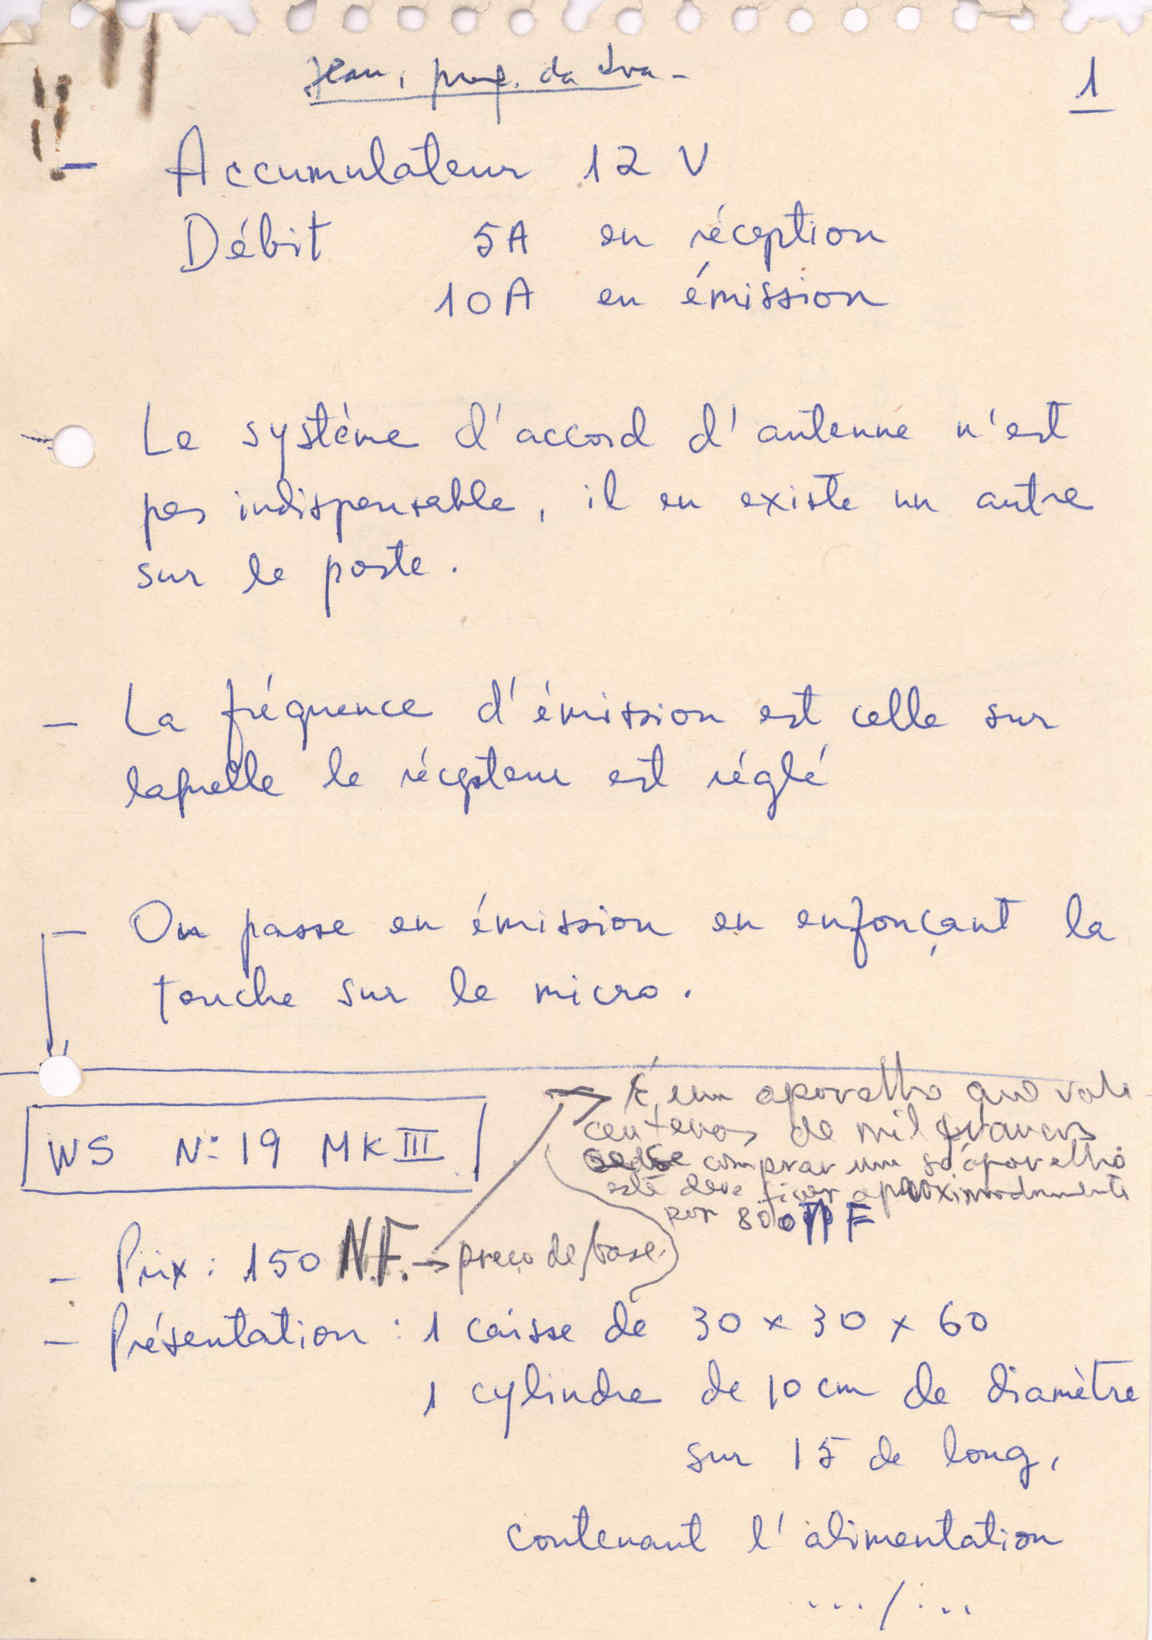 Jean, prof. da Iva -
1
- Accumulateur 12 V
Débit 5A en réception
10A en émission
- Le système d'accord d'antenne n'est
pas indispensable, il en existe un autre
sur le poste.
- La fréquence d'émission est celle sur
laquelle le récepteur est réglé
- On passe en émission en enfonçant la
touche sur le micro.
WS No 19 MK III
É um aparelho que vale
centenas de mil francos
comprar um só aparelho
este deve ficar aproximadamente
por 800 NF
- Prix : 150 N.F. → preço de base.
- Présentation : 1 caisse de 30 x 30 x 60
1 cylindre de 10 cm de diamètre
sur 15 de long,
contenant l'alimentation
.../...